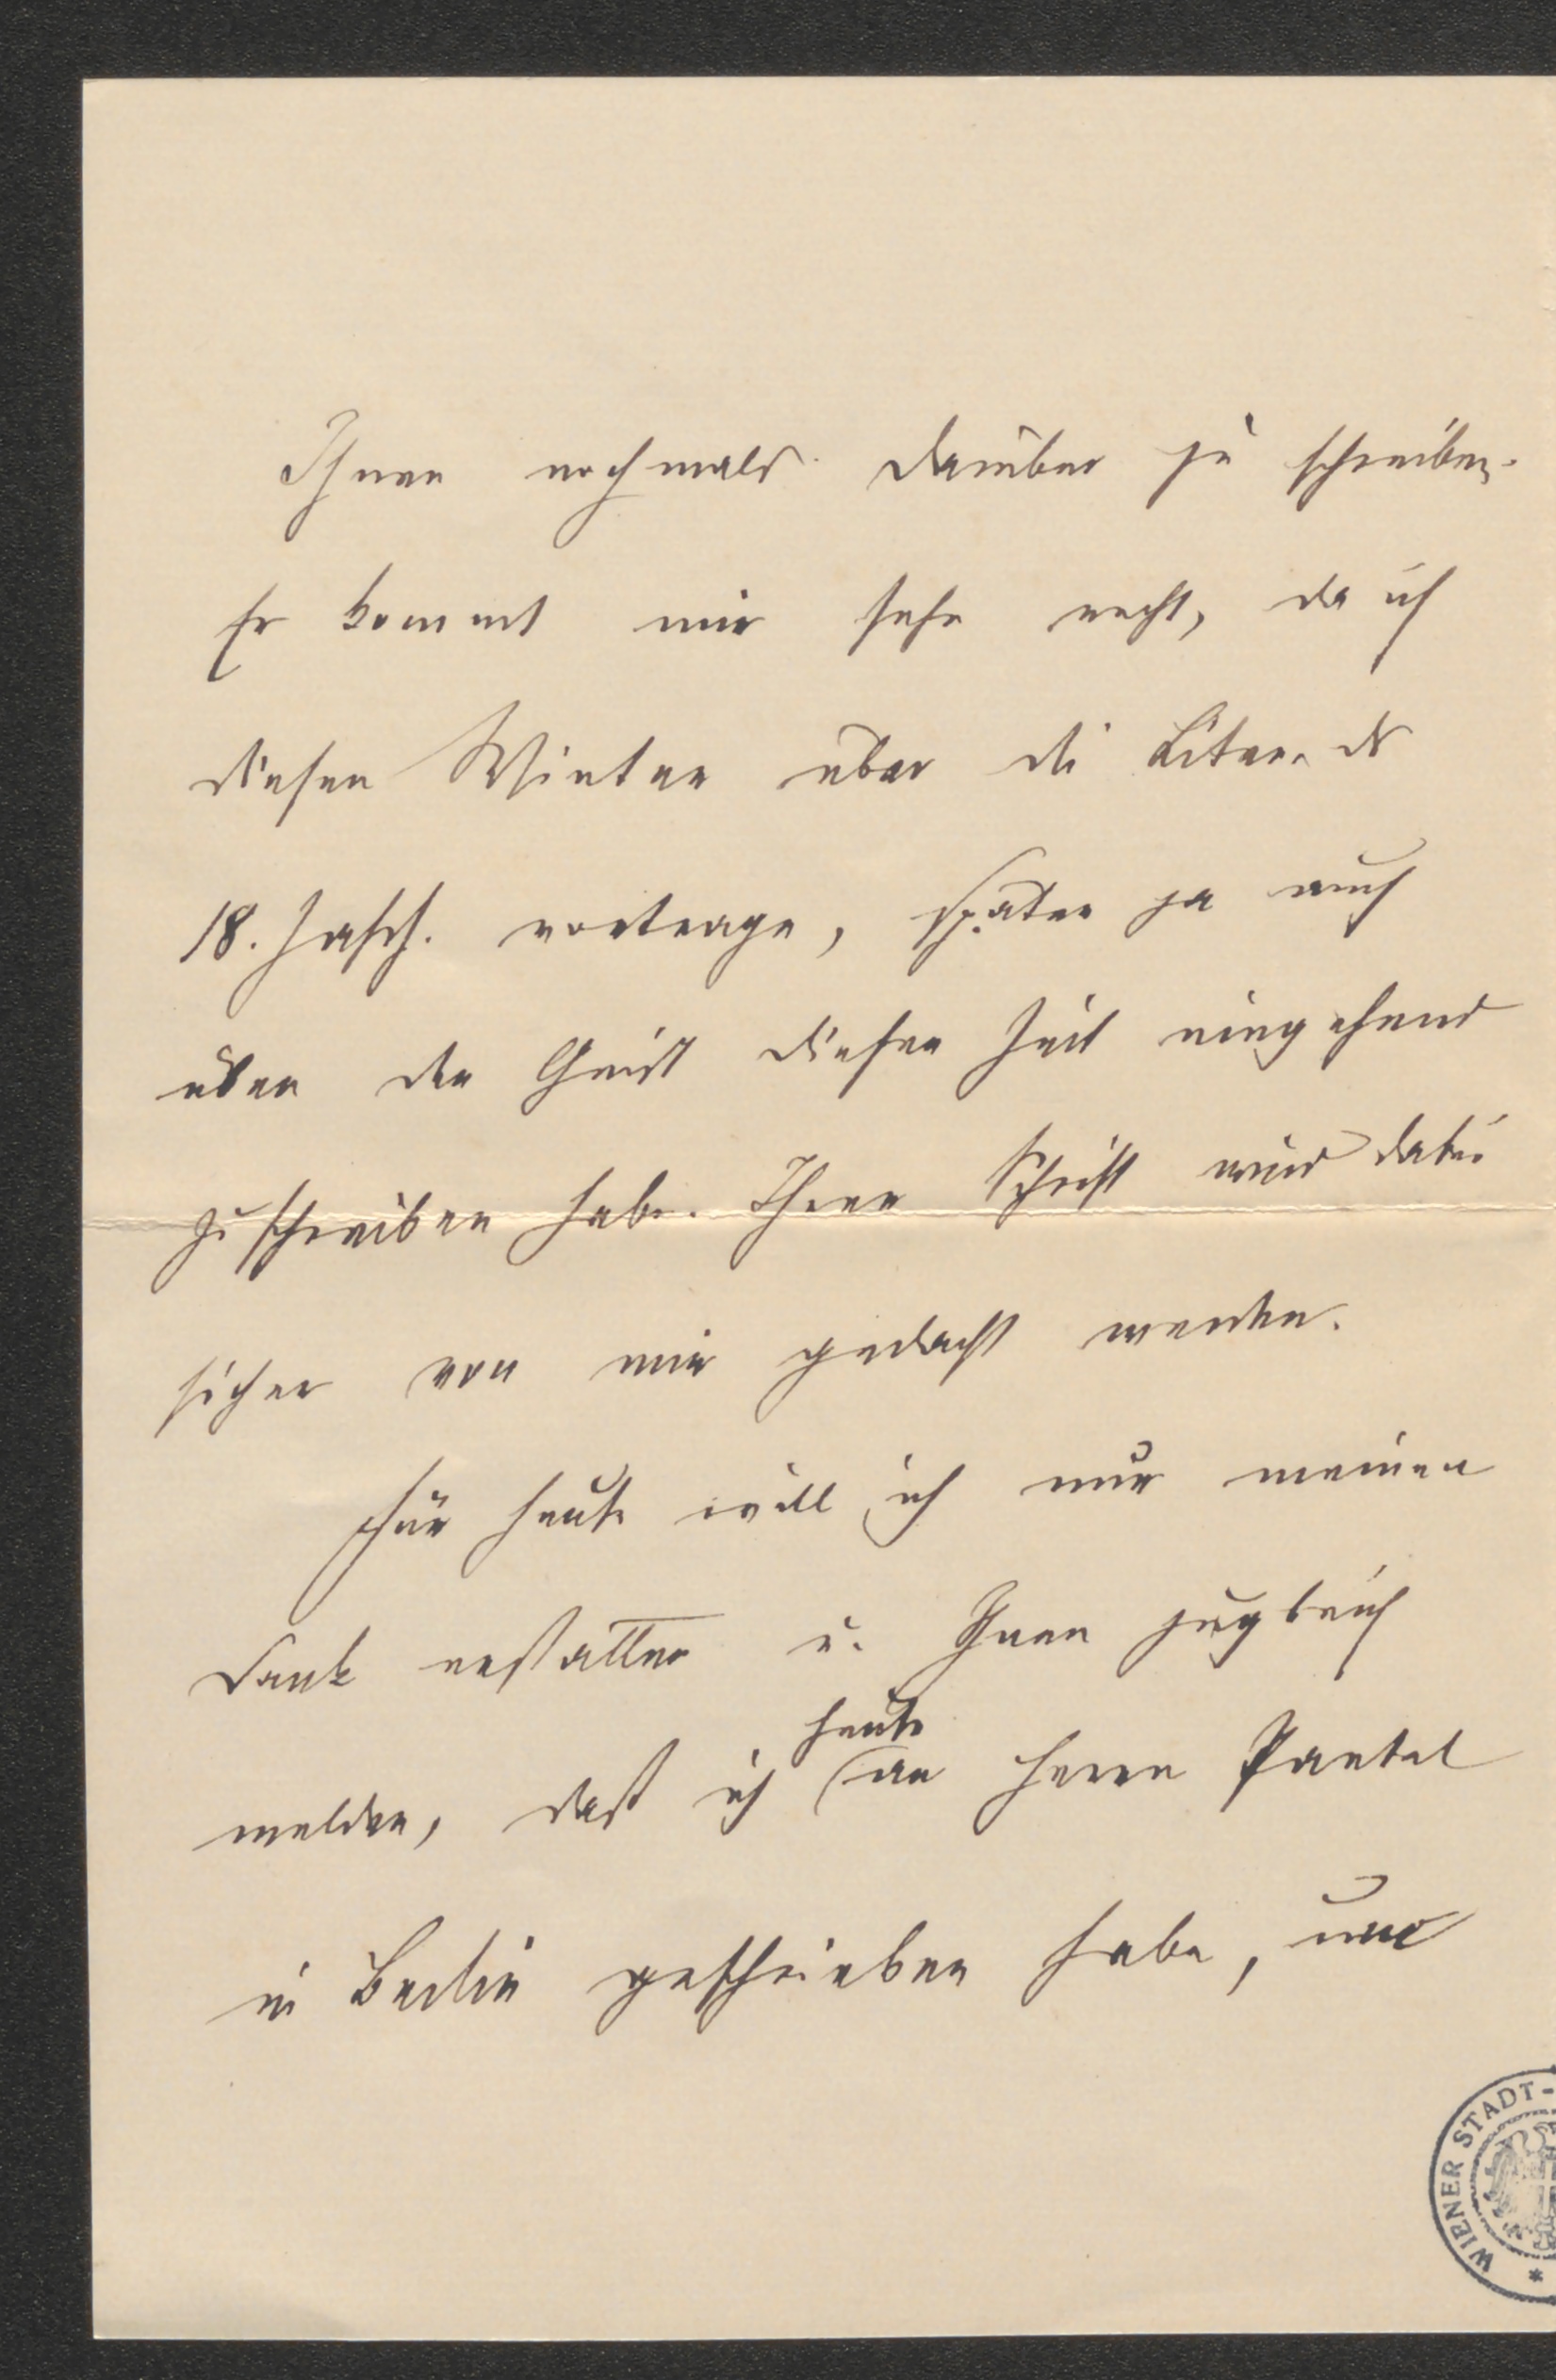 Ihnen nochmals darüber zu schreiben.
Er kommt mir sehr recht, da ich
diesen Winter über die Liter. des
18. Jahrh. vortrage, später ja auch
über den Geist dieser Zeit eingehend
zu schreiben habe. Ihrer Schrift wird dabei
sicher von mir gedacht werden.
Für heute will ich nur meinen
Dank erstatten u. Ihnen zugleich
heute
melden, daß ich an Herrn Paetel
in Berlin geschrieben habe, und
WIENER STADT-